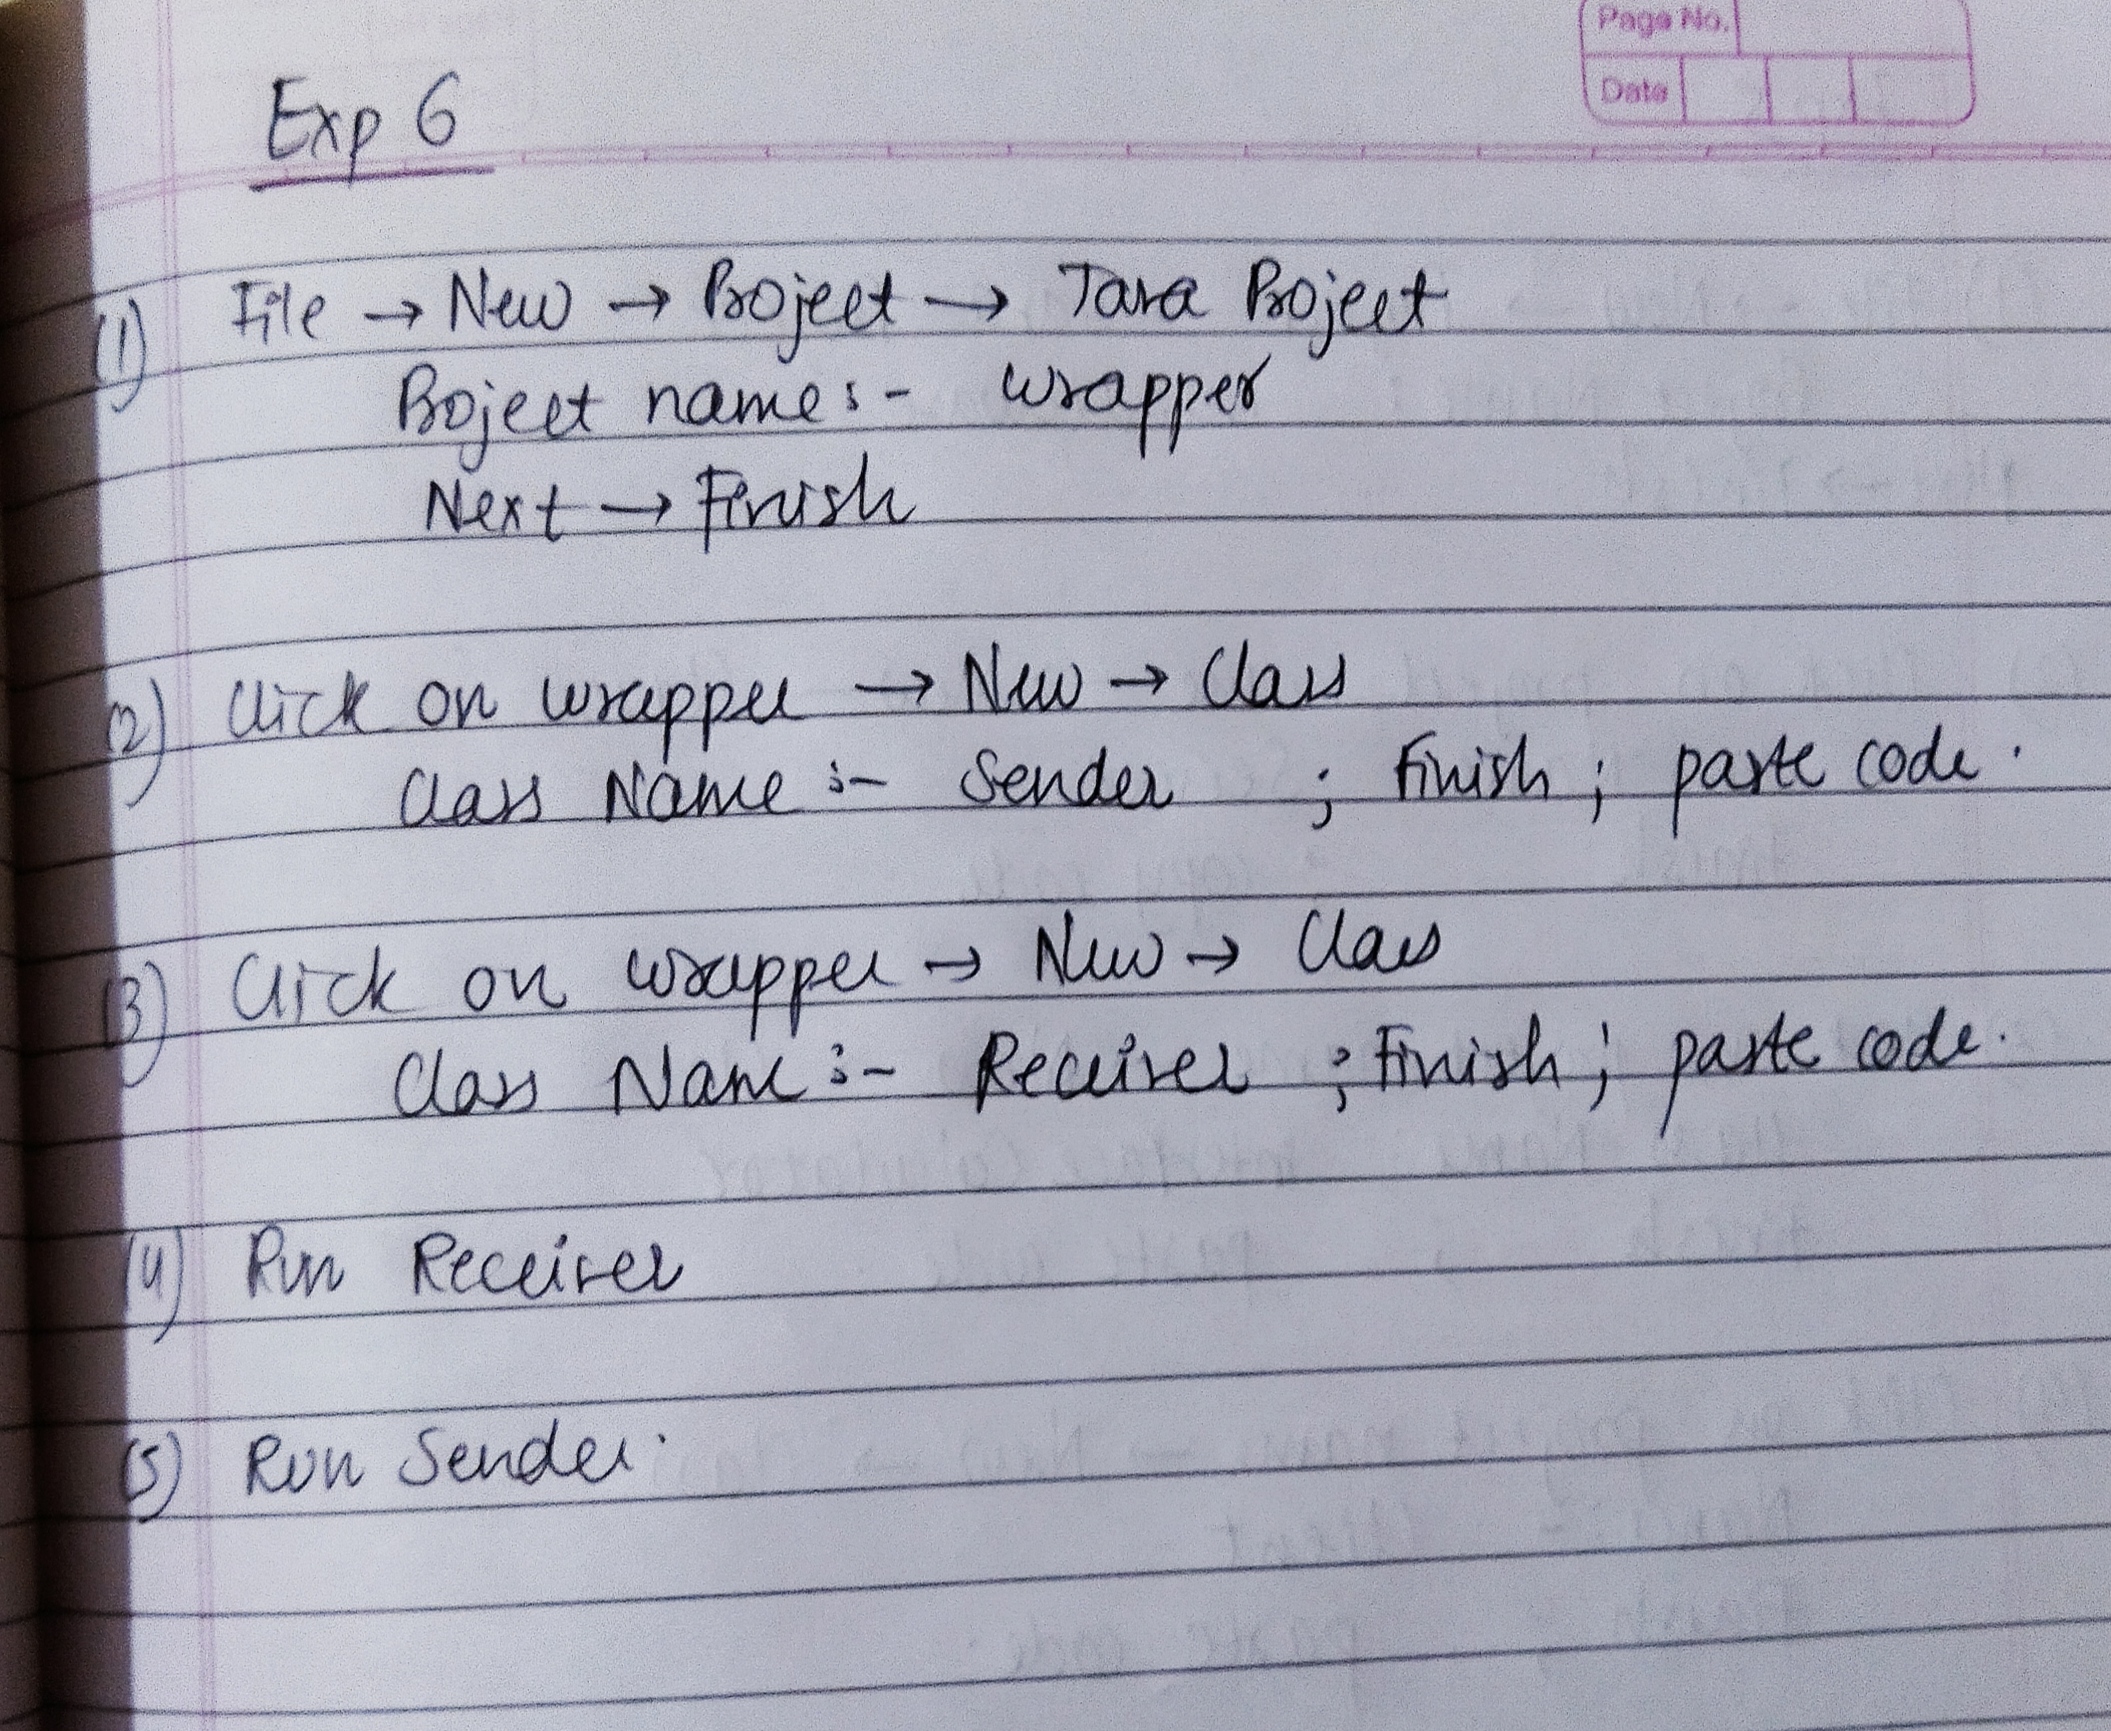 Page No.
Date
Exp 6
(1) File → New → Project → Java Project
Project name :- wrapper
Next → Finish
(2) Click on wrapper → New → Class
Class Name :- Sender ; Finish ; paste code.
(3) Click on wrapper → New → Class
Class Name :- Receiver ; Finish ; paste code.
(4) Run Receiver
(5) Run Sender.